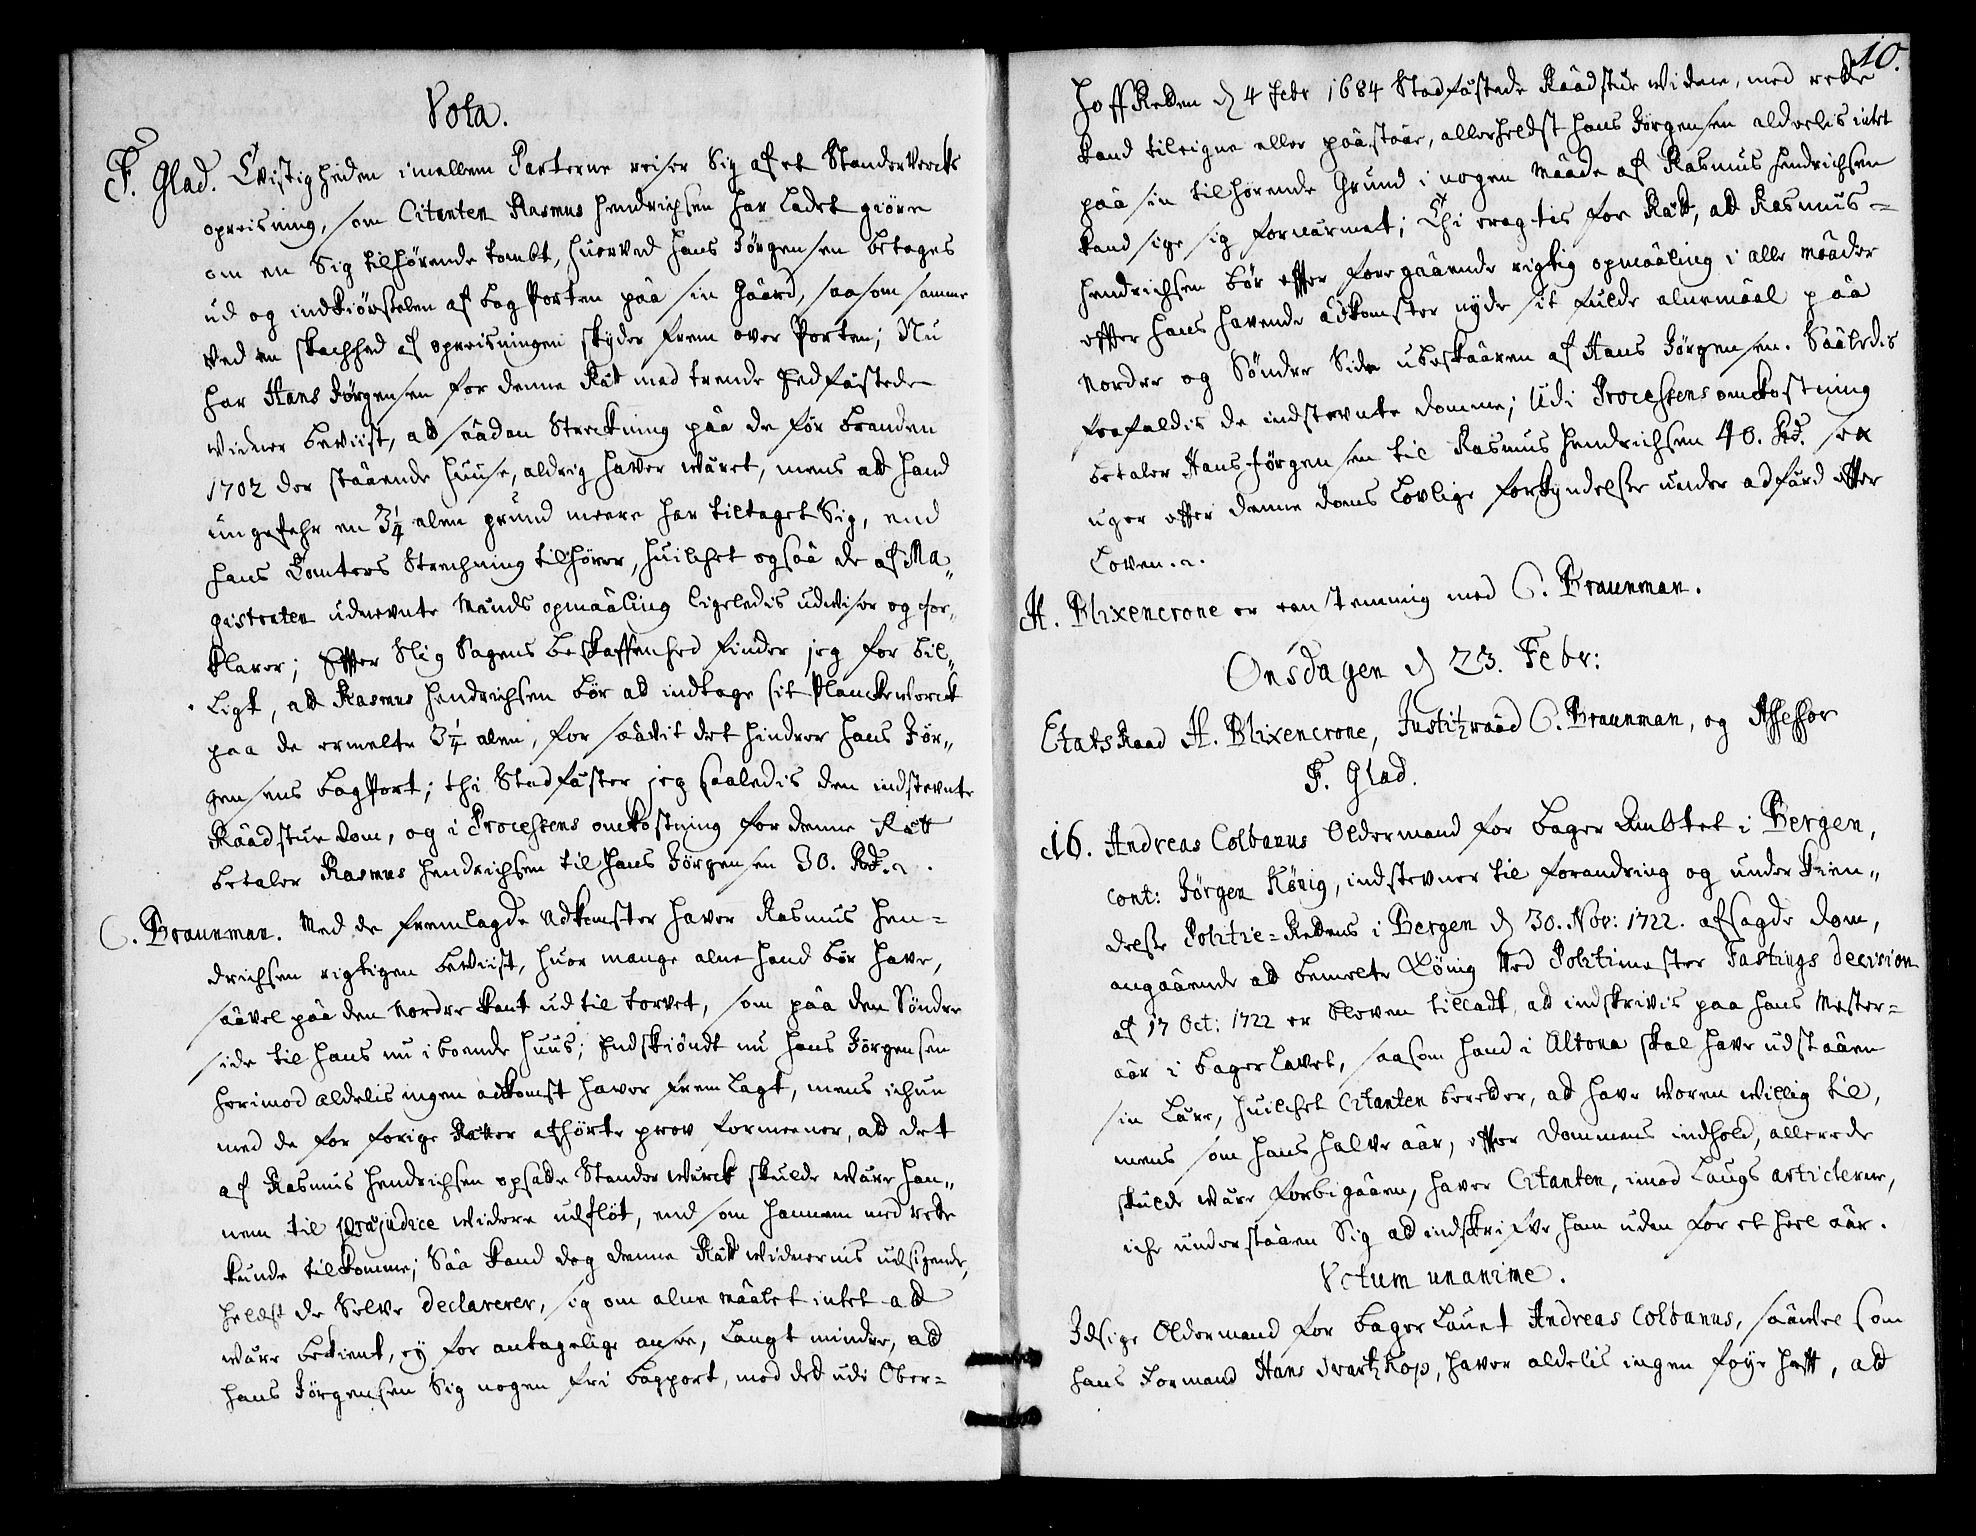 Vota.
F. Glad. Tvistigheden imellem Parterne reiser Sig af et Standervercks
opreisning, som Citanten Rasmus Hendrichsen har ladet giöre
om en Sig tilhörende tombt, huorved Hans Jörgensen betages
ud og indkiörselen af bag Porten paa sin Gaard, saasom samme
ved en skachhed af opreisningen skyder frem over Porten; Nu
har Hans Jörgensen for denne Rät med trende Eedfästede
widner beviist, ad saadan Streckning paa de för branden
1702 der staaende huuse, aldrig haver wäret, mens ad hand
ungefehr en 3¼ alen grund meere har tiltaget Sig, end
hans Tomters Strechning tilhörer, huilchet ogsaa de af Ma„
gistraten udnevnte Mænds opmaaling ligeledis udviser og for„
klarer; Effter Slig Sagens beskaffenhed finder jeg for bil„
ligt, ad Rasmus Hendrichsen bör ad indtage sit Planckewerck
paa de ermelte 3¼ alen, for saavit det hindrer Hans Jör„
gensens bagPort; thi Stadfäster jeg saaledis den indstevnte
Raadstue dom, og i Processens omkostning for denne Rätt
betaler Rasmus Hendrichsen til Hans Jörgensen 30. Rd.
C. Braunman. Med de fremlagde Adkomster haver Rasmus Hen=
drichsen rigtigen beviist, huor mange alne hand bör have,
saavel paa den Nordre kant ud til torvet, som paa den Söndre
side til hans nu iboende huus; Endskiöndt nu Hans Jörgensen
herimod aldelis ingen adkomst haver frem lagt, mens ichun
med de for forige Rätter afhörte prov formeener, ad det
af Rasmus Hendrichsen opsatte Stander wärck skulde wäre han„
nem til præjudice widere udflöt, end som hannem med rette
kunde tilkomme; Saa kand dog denne Rätt widnernis udsigende,
heldst de Selve declarerer, sig om alne maalet intet ad
wäre bekient, ey for antagelige ansee, langt mindre, ad
Hans Jörgensen Sig nogen fri bagport, med det udi Ober=
10.
HoffRetten d 4 Febr 1684 Stadfästede Raadstue widne, med rette
kand tileigne eller paastaae, allerheldst Hans Jörgensen aldelis intet
paa sin tilhörende Grund i nogen maade af Rasmus Hendrichsen
kand sige sig fornärmet; Thi eragtis for Rätt, ad Rasmus=
Hendrichsen bör effter foregaaende rigtig opmaaling i alle maader
effter hans havende adkomster nyde sit fulde alnemaal paa
nordre og Söndre Side ubeskaaren af Hans Jörgensen. Saaledis
frafaldis de indstevnte domme; Udi Processens omkostning
betaler Hans Jörgensen til Rasmus Hendrichsen 40. Rd. sex
uger effter denne doms Lovlige forkyndelse under adfärd effter
Loven.
H. Blixencrone er eenstemmig med C. Braunman.
Onsdagen d 23. Febr:
EtatsRaad H. Blixencrone, Justitzraad C. Braunman, og Assessor
F. Glad.
16. Andreas Colbanus Oldermand for bager Ambtet i Bergen,
cont: Jörgen König, indstevner til forandring og under kien„
delse Politie=Rettens i Bergen d 30. Nov: 1722. afsagde dom,
angaaende ad bemelte König ved Politimester Fastings decision
af 17 Oct: 1722 er bleven tilladt, ad indskrivis paa hans Mester=
aar i bagerlavet, saasom hand i Altona skal have udstaaen
sin Läre, huilchet Citanten beretter, ad have woren willig til,
mens som hans halve aar, effter dommens indhold, allerede
skulde wäre forbigaaen, haver Citanten, imod Laugs articlerne,
iche understaaen Sig ad indskrifve ham uden for et heel aar.
Votum unanime.
Idsige Oldermand for bagerLauet Andreas Colbanus, saawel som
hans Formand Hans Svartzkop, haver aldelis ingen föye hafft, ad